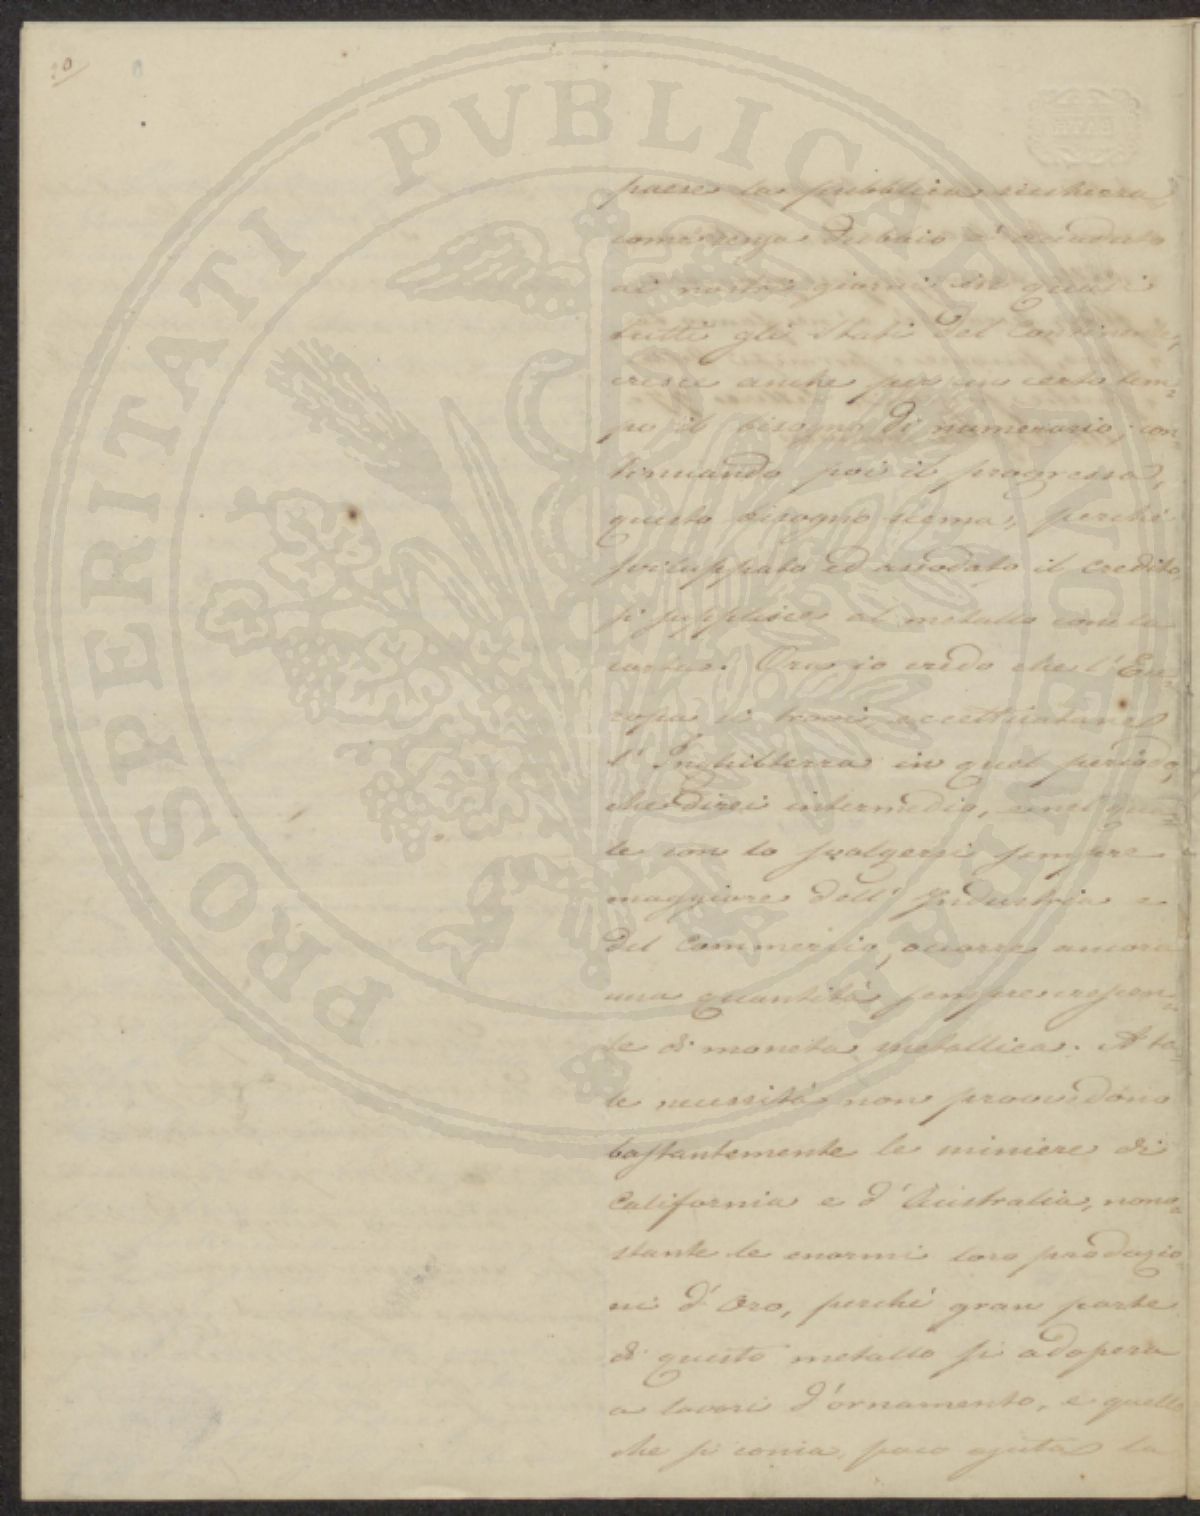 PROSPERITATI PVBLICAE AVGENDAE
BATH
paese la pubblica ricchezza,
come senza dubbio è accaduto
ai nostri giorni in quasi
tutti gli Stati del Continente,
cresce anche per un certo tem=
po il bisogno di numerario; con=
tinuando poi il progresso,
questo bisogno scema, perchè
sviluppato ed assodato il credito
si supplisce al metallo con la
carta. Ora io credo che l'Eu=
ropa si trovi, eccettuatane
l'Inghilterra in quel periodo,
che direi intermedio, e nel qua=
le con lo svolgersi sempre
maggiore dell'Industria e
del Commercio, occorre ancora
una quantità sempre crescen=
te di moneta metallica. A ta=
le necessità non provvedono
bastantemente le miniere di
California e d'Australia, nono=
stante le enormi loro produzio
ni d'Oro, perchè gran parte
di questo metallo si adopera
a lavori d'ornamento, e quello
che si conia, poco ajuta la